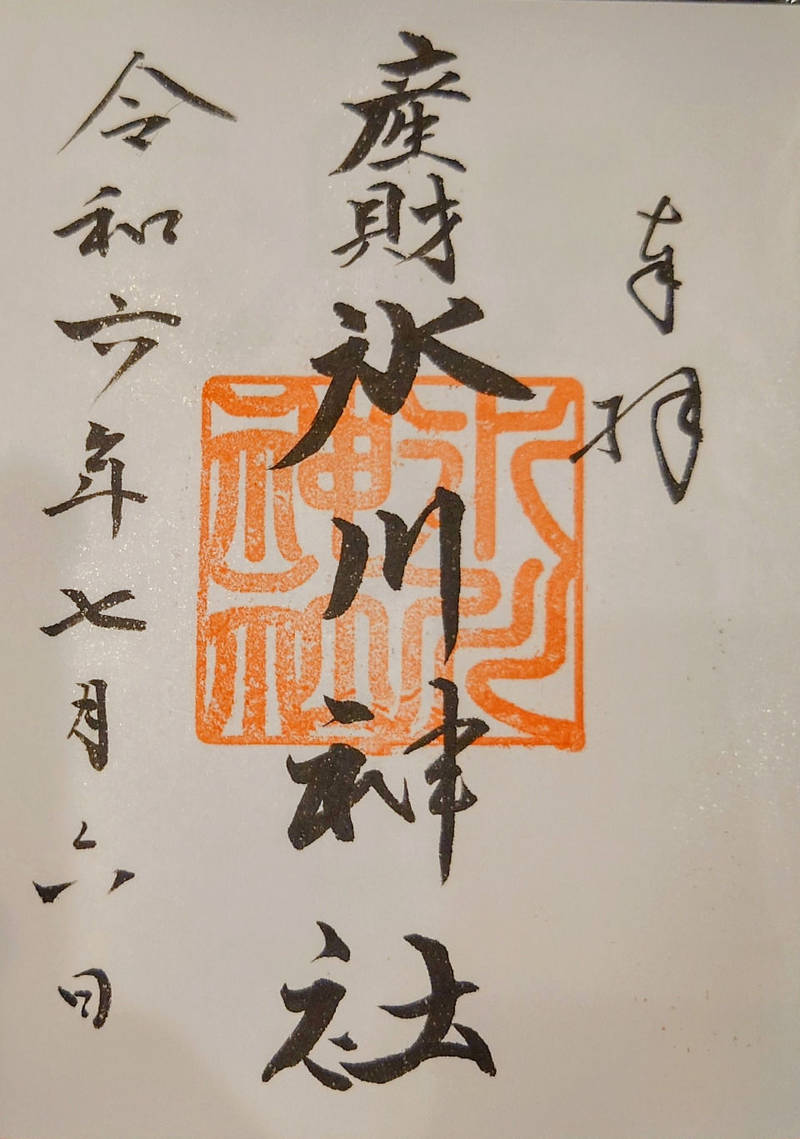 奉拝
産財氷川神社
令和六年七月六日
氷川神社